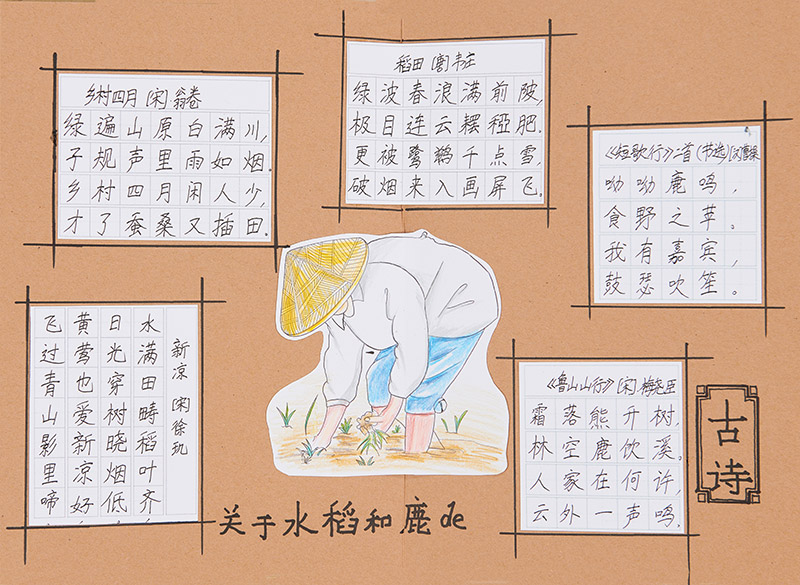 乡村四月 [宋] 翁卷
绿遍山原白满川,
子规声里雨如烟.
乡村四月闲人少,
才了蚕桑又插田.
稻田 [唐] 韦庄
绿波春浪满前陂,
极目连云䆉稏肥.
更被鹭鹚千点雪,
破烟来入画屏飞.
《短歌行》二首(节选) [汉]曹操
呦呦鹿鸣,
食野之苹。
我有嘉宾,
鼓瑟吹笙。
新凉 [宋] 徐玑
水满田畴稻叶齐
日光穿树晓烟低
黄莺也爱新凉好
飞过青山影里啼
《鲁山山行》 [宋] 梅尧臣
霜落熊升树,
林空鹿饮溪。
人家在何许,
云外一声鸣.
关于水稻和鹿de
古诗